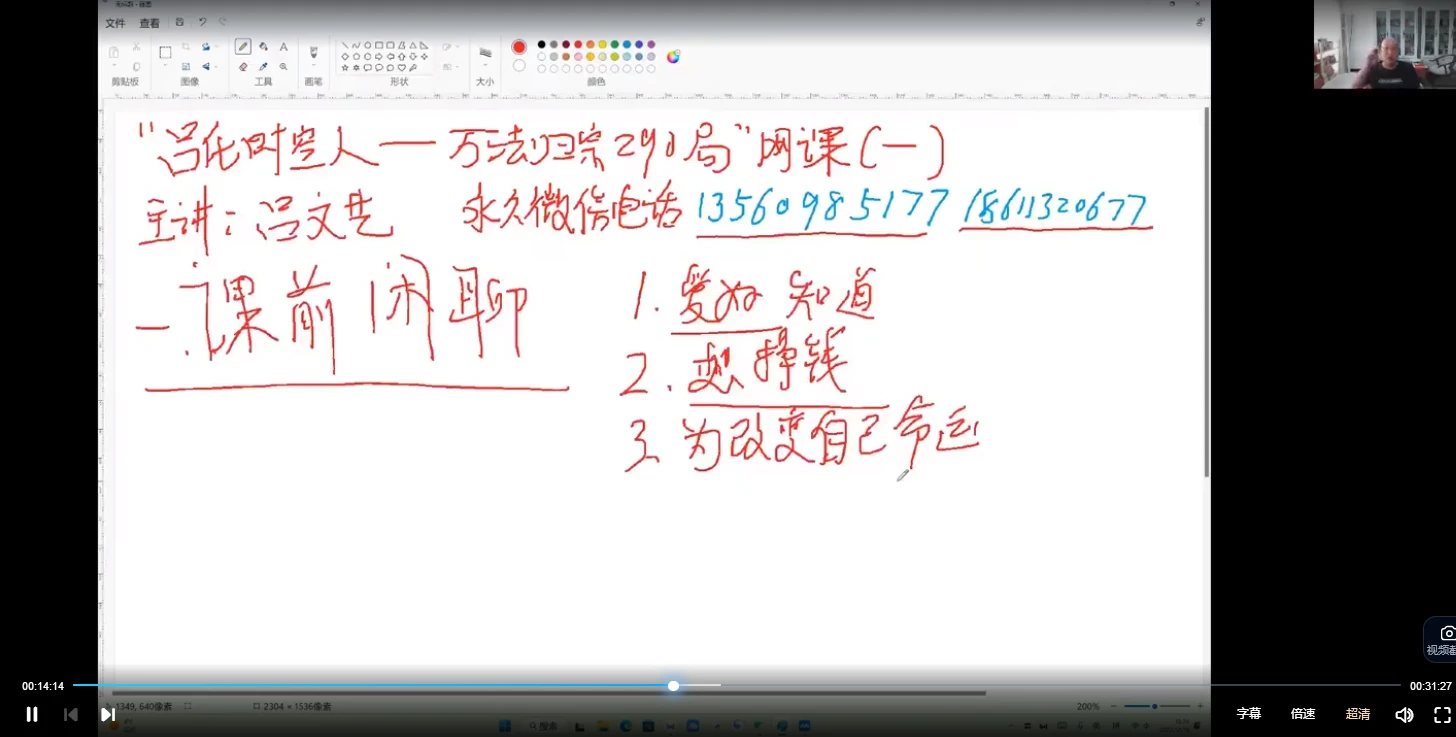 文件 查看
剪贴板 图像 工具 画笔 形状 大小 颜色
"吕氏时空人一万法归宗290局"网课(一)
主讲:吕文艺 永久微信电话 13560985177 18611320677
一.课前闲聊
1.爱好 知道
2.想挣钱
3、为改变自己命运
视频截
00:14:14 00:31:27
1349, 640像素 2304 × 1536像素 200%
搜索
字幕 倍速 超清